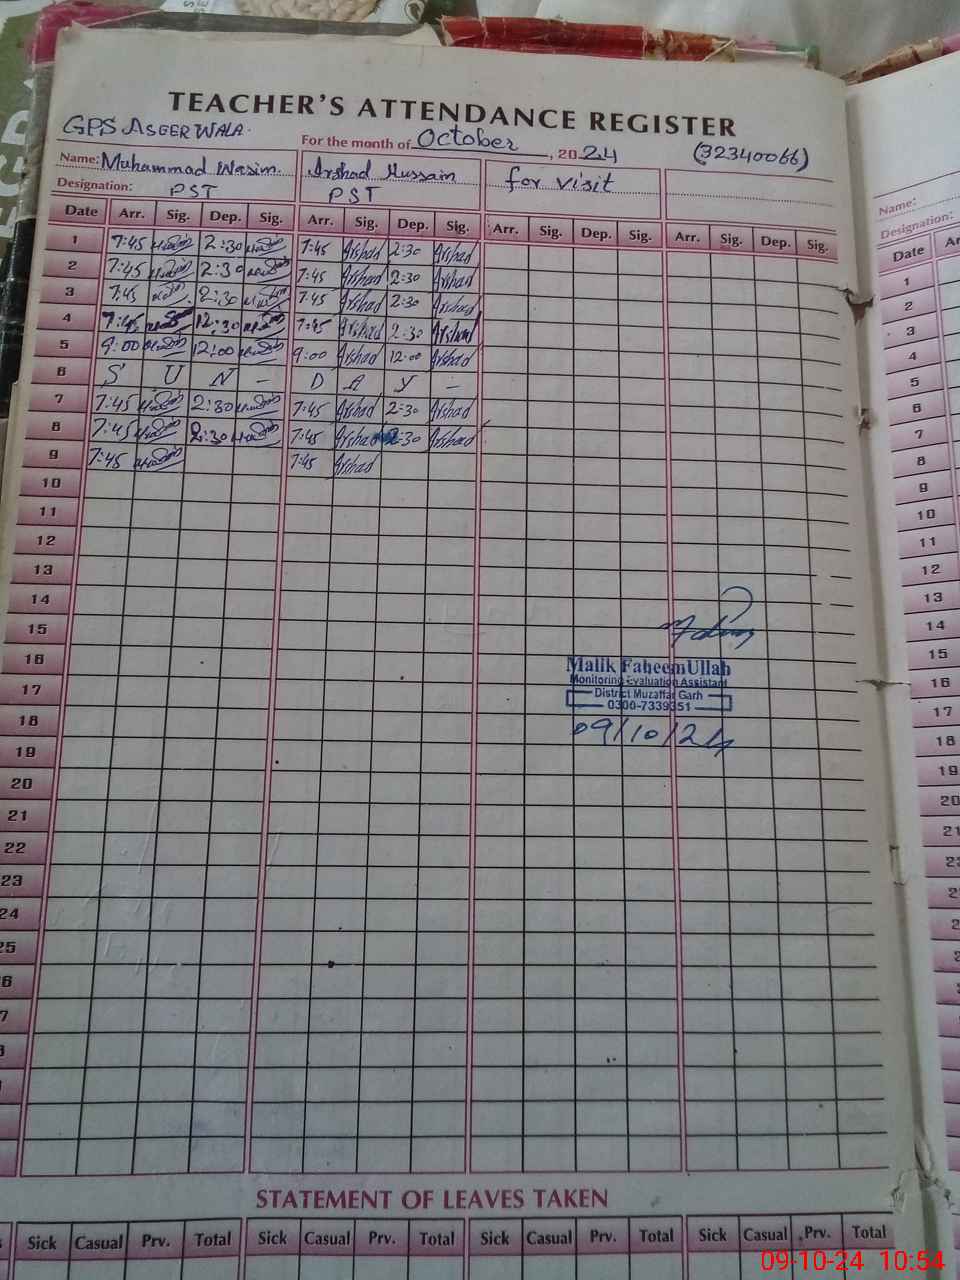 TEACHER'S ATTENDANCE REGISTER
GPS ASEERWALA.
For the month of October, 2024 (32340066)
Name: Muhammad Wasim. Arshad Hussain for visit
Designation: PST PST
Date Arr. Sig. Dep. Sig. Arr. Sig. Dep. Sig. Arr. Sig. Dep. Sig. Arr. Sig. Dep. Sig.
1 7:45 2:30 7:45 Arshad 2:30 Arshad
2 7:45 2:30 7:45 Arshad 2:30 Arshad
3 7:45 2:30 7:45 Arshad 2:30 Arshad
4 7:45 12:30 7:45 Arshad 2:30 Arshad
5 9:00 12:00 9:00 Arshad 12:00 Arshad
6 S U N - D A Y -
7 7:45 2:30 7:45 Arshad 2:30 Arshad
8 7:45 2:30 7:45 Arshad 2:30 Arshad
9 7:45 7:45 Arshad
10
11
12
13
14
15
16
17
18
19
20
21
22
23
24
25
6
7
8
Malik FaheemUllah
Monitoring Evaluation Assistant
District Muzaffar Garh
0300-7339351
09/10/24
STATEMENT OF LEAVES TAKEN
Sick Casual Prv. Total Sick Casual Prv. Total Sick Casual Prv. Total Sick Casual Prv. Total
Name:
Designation:
Date Ar
1
2
3
4
5
6
7
8
9
10
11
12
13
14
15
16
17
18
19
20
21
09-10-24 10:54